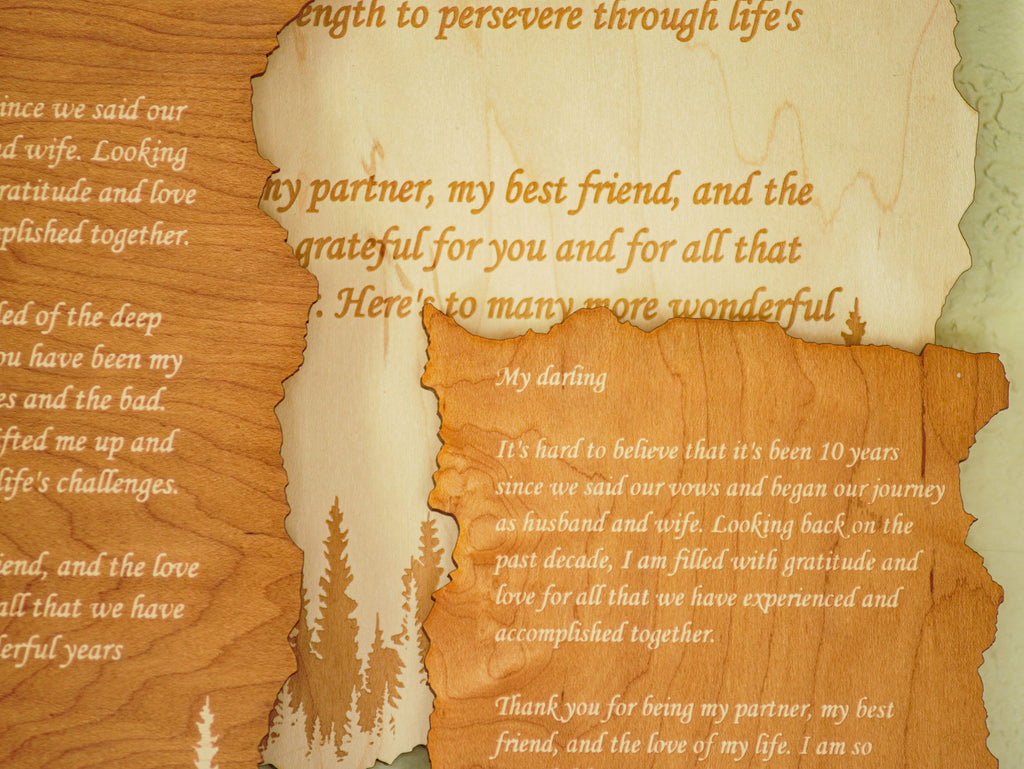 since we said our
wife. Looking
gratitude and love
together.
of the deep
you have been my
and the bad.
me up and
life's challenges.
and the love
all that we have
years
to persevere through life's
my partner, my best friend, and the
grateful for you and for all that
. Here's to many more wonderful
My darling
It's hard to believe that it's been 10 years
since we said our vows and began our journey
as husband and wife. Looking back on the
past decade, I am filled with gratitude and
love for all that we have experienced and
accomplished together.
Thank you for being my partner, my best
friend, and the love of my life. I am so